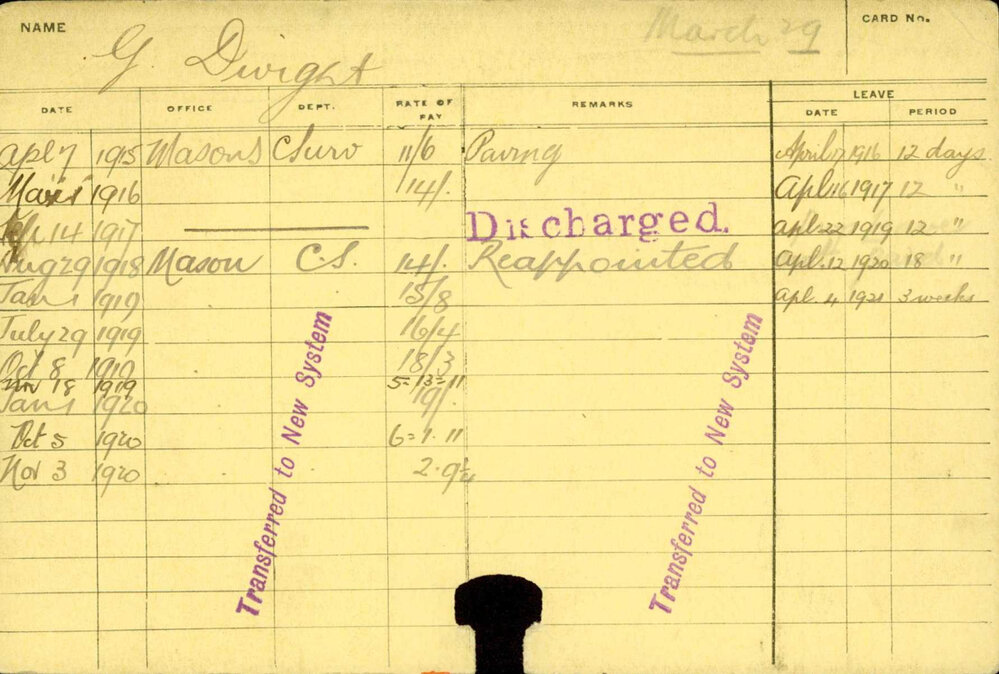 NAME G. Dwight March 29 CARD No.
DATE OFFICE DEPT. RATE OF PAY REMARKS LEAVE DATE PERIOD
Apl 7 1915 Masons C Surv 11/6 Paving April 17 1916 12 days
1916 14/. Apl. 16 1917 12 "
14 1917 Discharged. apl. 22 1919 12 "
Aug 29 1918 Mason C.S. 14/. Reappointed Apl. 12 1920 18 "
Jan 1 1919 15/8 apl. 4 1921 3 weeks
July 29 1919 16/4
Oct 8 1919 18/3
Nov 18 1919 5=13=11
Jan 1 1920 19/.
Oct 5 1920 6=7.11
Nov 3 1920 2.9¼
Transferred to New System
Transferred to New System